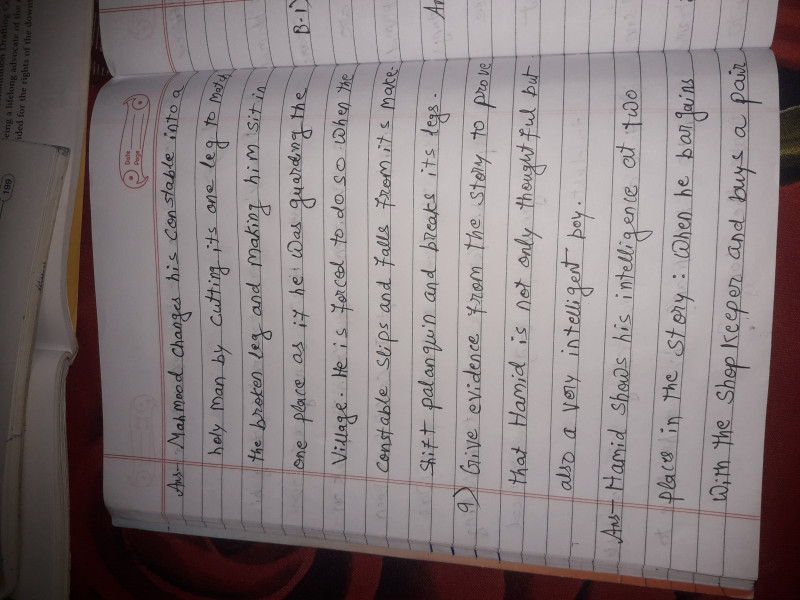 Date
Page
Ans- Mahmood changes his constable into a
holy man by cutting its one leg to match
the broken leg and making him sit in
one place as if he was guarding the
Village. He is forced to do so when the
constable slips and falls from its make-
shift palanquin and breaks its legs.
9) Give evidence from the story to prove
that Hamid is not only thoughtful but
also a very intelligent boy.
Ans- Hamid shows his intelligence at two
places in the story: when he bargains
with the shopkeeper and buys a pair
B-1)
An
199
eing a lifelong advocate of the
ided for the rights of the down